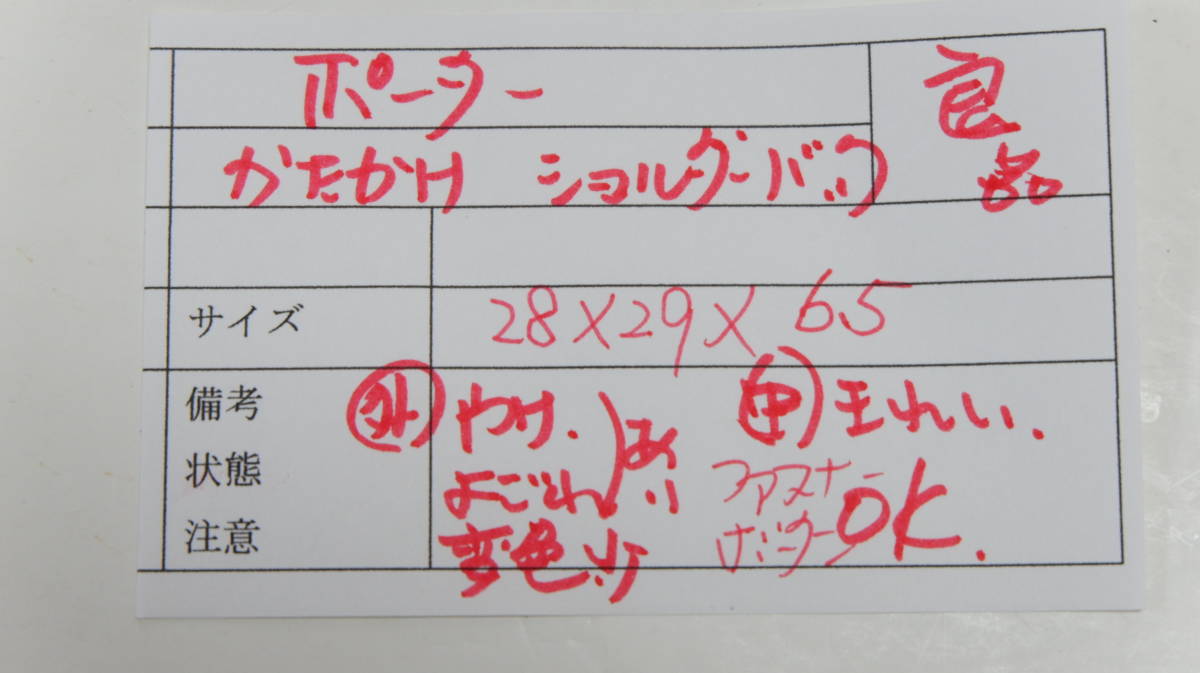 ポーター
良品
かたかけ ショルダーバック
サイズ 28×29×6.5
備考 外 やけ. 中 キれい.
状態 よごれ あり ファスナー OK.
注意 変色.少 ボーター